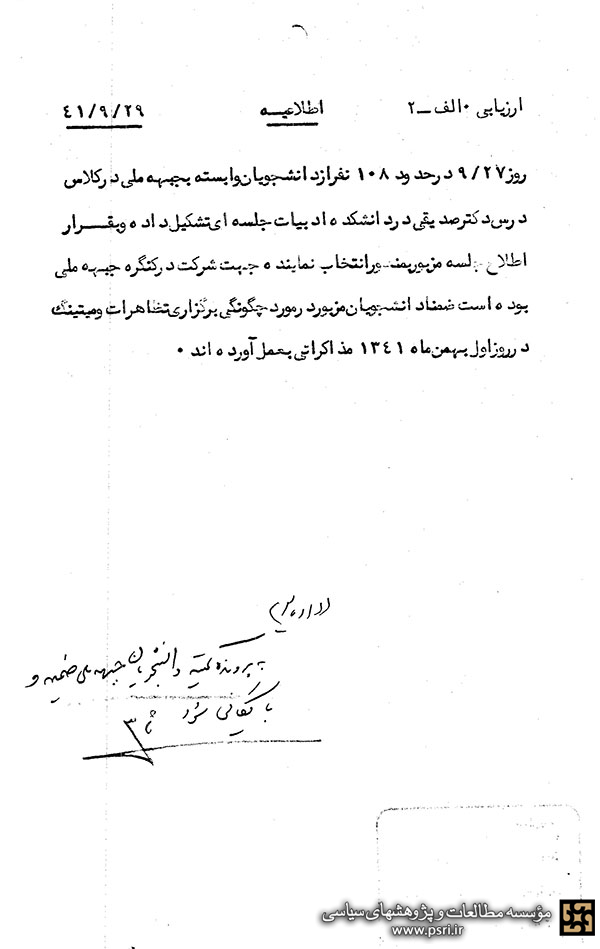 ارزیابی ۰ الف ـ ۲ اطلاعیـــه ۴۱/۹/۲۹
روز ۹/۲۷ در حدود ۱۰۸ نفر از دانشجویان وابسته بجبهه ملی در کلاس
درس دکتر صدیقی در دانشکده ادبیات جلسه ای تشکیل داده و بقـــرار
اطلاع جلسه مزبور بمنظور انتخاب نماینده جهت شرکت در کنگره جبهه ملی
بوده است ضمناً دانشجویان مزبور در مورد چگونگی برگزاری تظاهرات و میتینگ
در روز اول بهمن ماه ۱۳۴۱ مذاکراتی بعمل آورده اند ۰
به پرونده کمیته دانشجویان جبهه ملی ضمیمه و
بایگانی شود
مؤسسه مطالعات و پژوهشهای سیاسی
www.psri.ir